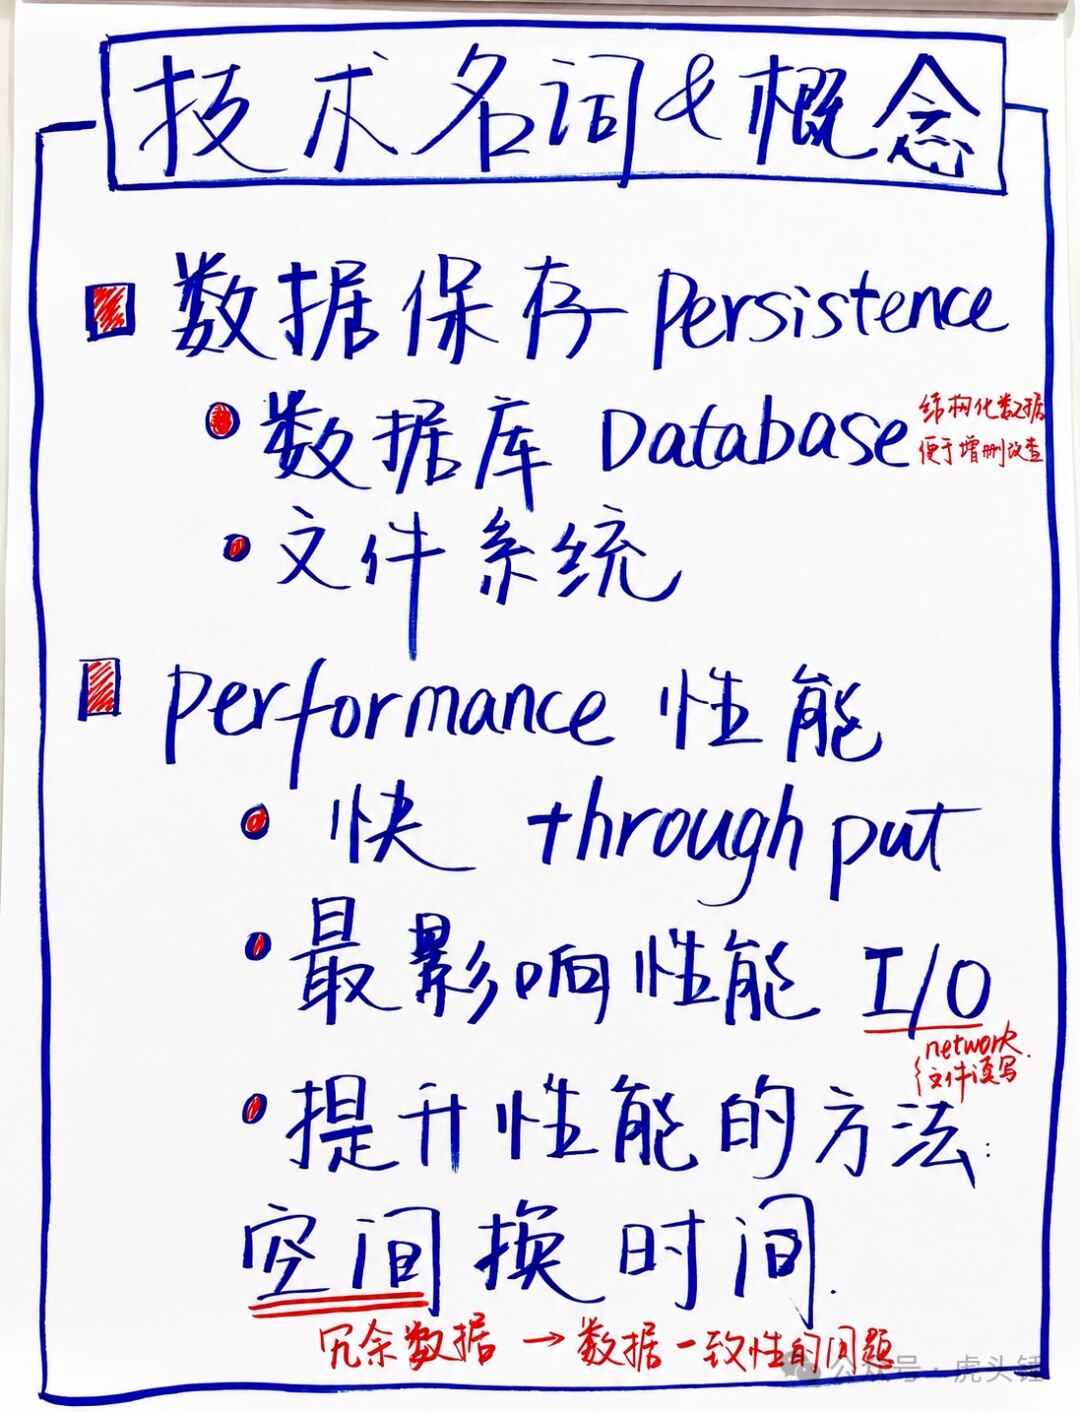 技术名词&概念
数据保存 Persistence
数据库 Database
结构化数据
便于增删改查
文件系统
Performance 性能
快 throughput
最影响性能 I/O
network
文件读写
提升性能的方法:
空间换时间.
冗余数据 → 数据一致性的问题
公众号·虎头锤